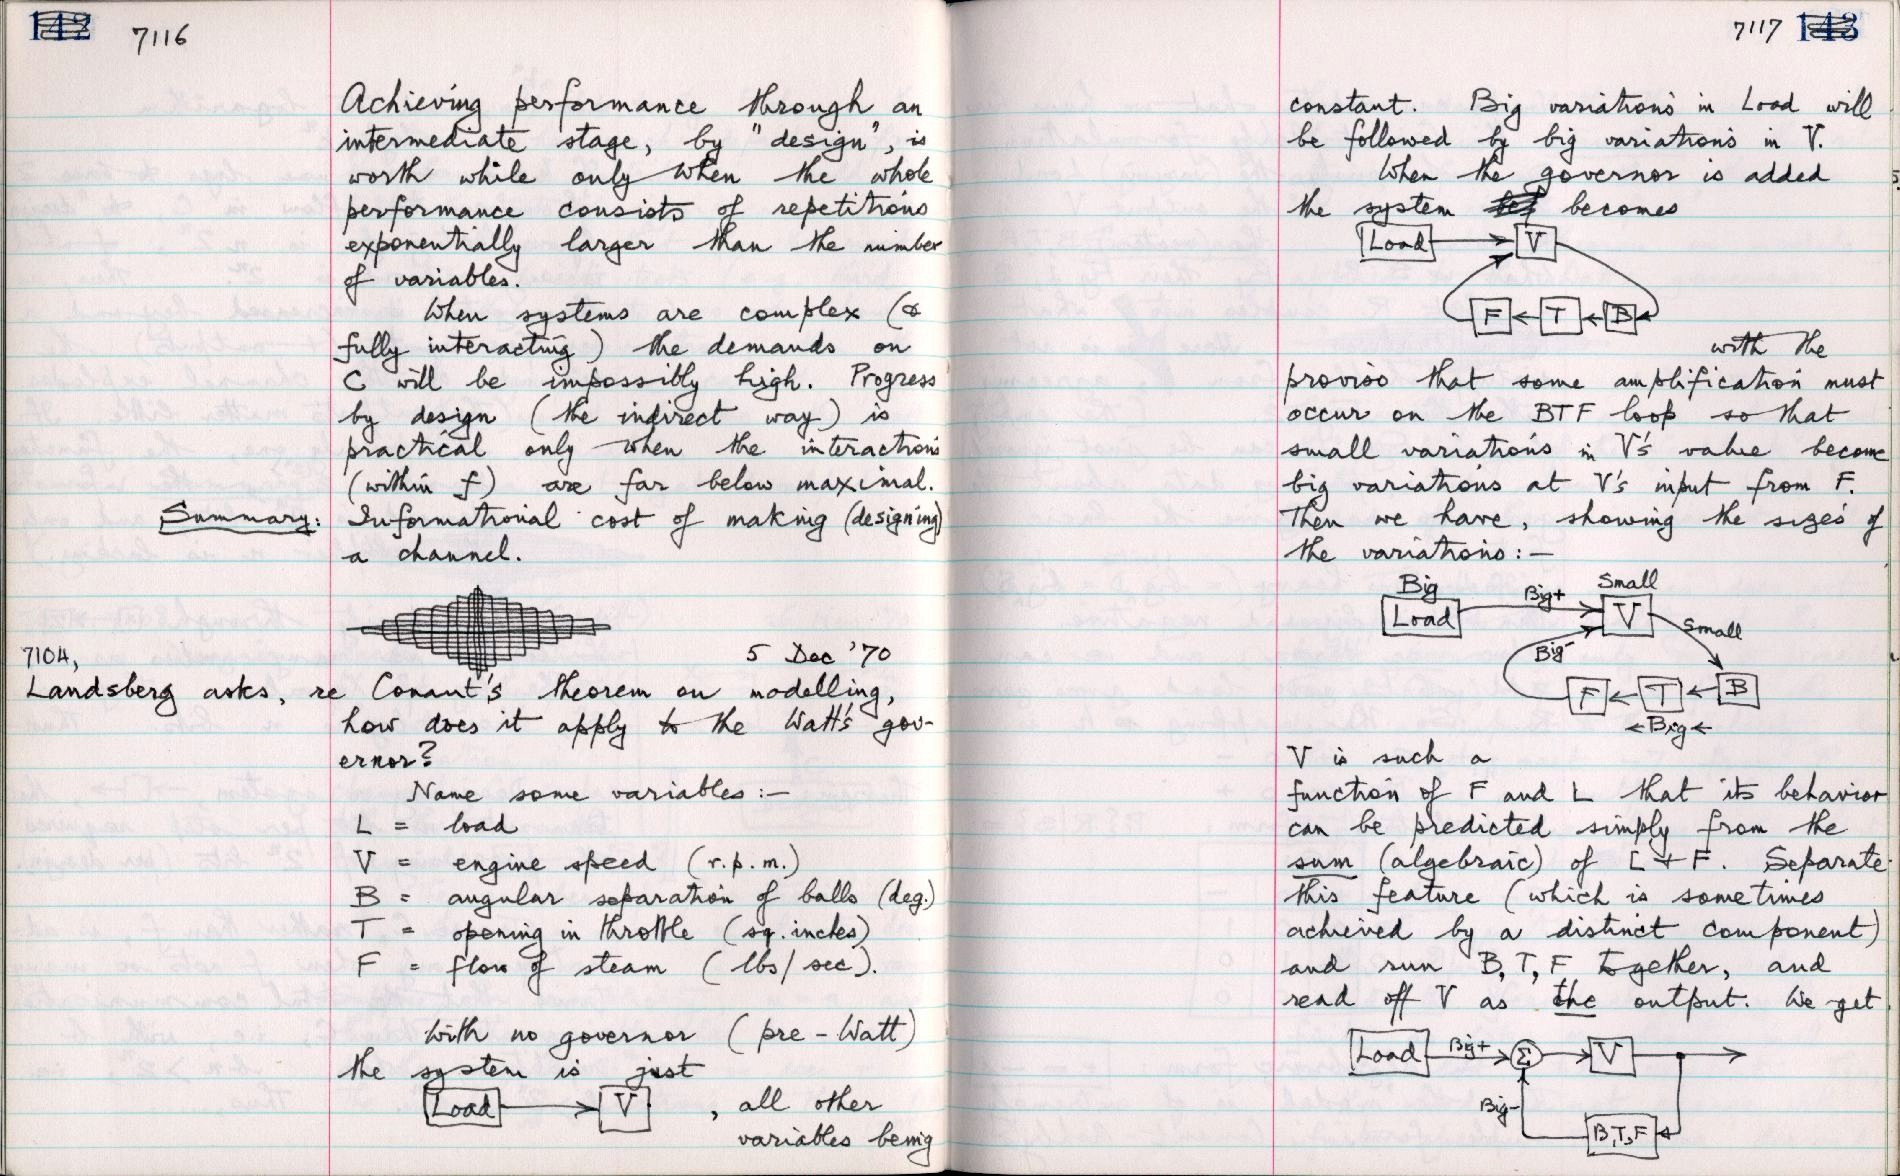 142 7116
Achieving performance through an
intermediate stage, by "design", is
worth while only when the whole
performance consists of repetitions
exponentially larger than the number
of variables.
When systems are complex (&
fully interacting) the demands on
C will be impossibly high. Progress
by design (the indirect way) is
practical only when the interactions
(within f) are far below maximal.
Summary: Informational cost of making (designing)
a channel.
5 Dec '70
7104,
Landsberg asks, re Conant's theorem on modelling,
how does it apply to the Watt's gov-
ernor?
Name some variables :—
L = load
V = engine speed (r.p.m.)
B = angular separation of balls (deg.)
T = opening in throttle (sq. inches)
F = flow of steam (lbs/sec).
With no governor (pre-Watt)
the system is just
Load V , all other
variables being
7117 143
constant. Big variations in Load will
be followed by big variations in V.
When the governor is added
the system becomes
Load V
F T B
with the
proviso that some amplification must
occur on the BTF loop so that
small variations in V's value become
big variations at V's input from F.
Then we have, showing the sizes of
the variations :—
Big Small
Load Big+ V
Small
Big-
F T B
Big
V is such a
function of F and L that its behavior
can be predicted simply from the
sum (algebraic) of L & F. Separate
this feature (which is sometimes
achieved by a distinct component)
and run B, T, F together, and
read off V as the output. We get
Load Big+ Σ V
Big-
B,T,F